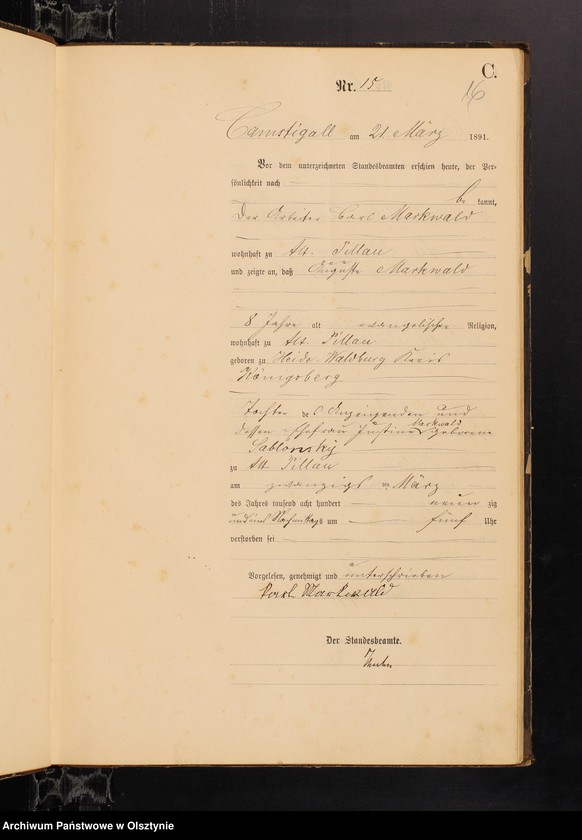 C.
Nr. 15
16
Camstigall am 21 März 1891.
Vor dem unterzeichneten Standesbeamten erschien heute, der Per-
sönlichkeit nach
be kannt,
der Arbeiter Carl Markwald
wohnhaft zu Alt Pillau
und zeigte an, daß Auguste Markwald
8 Jahre alt evangelischer Religion,
wohnhaft zu Alt Pillau
geboren zu Heide Waldburg Kreis
Königsberg
Tochter des Anzeigenden und
dessen Ehefrau Justine Markwald geborene
Sablonsky
zu Alt Pillau
am zwanzigsten März
des Jahres tausend acht hundert neun zig
und eins Nachmittags um fünf Uhr
verstorben sei
Vorgelesen, genehmigt und unterschrieben
Karl Markwald
Der Standesbeamte.
Archiwum Państwowe w Olsztynie